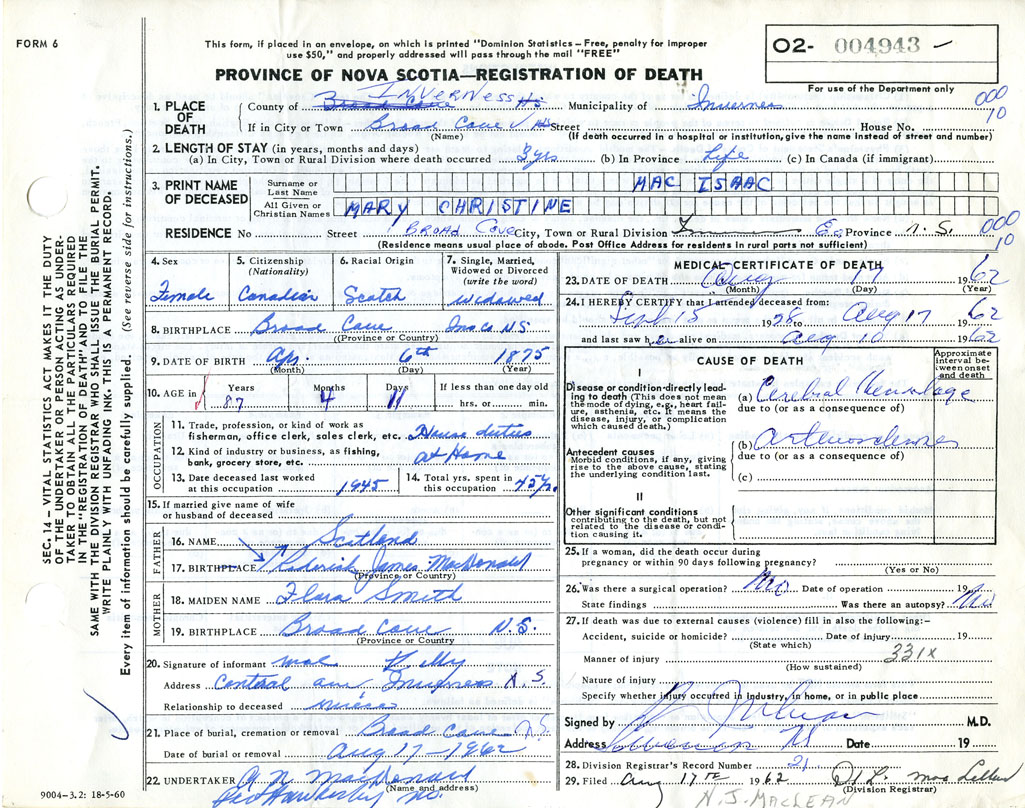 FORM 6
This form, if placed in an envelope, on which is printed "Dominion Statistics – Free, penalty for improper
use $50," and properly addressed will pass through the mail "FREE"
PROVINCE OF NOVA SCOTIA—REGISTRATION OF DEATH
O2- 004943
For use of the Department only
000
10
1. PLACE OF DEATH
County of Broad Cove INVERNESS NS Municipality of Inverness
If in City or Town Broad Cove NS Street House No.
(Name) (If death occurred in a hospital or institution, give the name instead of street and number)
2. LENGTH OF STAY (in years, months and days)
(a) In City, Town or Rural Division where death occurred 3 yrs (b) In Province Life (c) In Canada (if immigrant)
3. PRINT NAME OF DECEASED
Surname or Last Name MAC ISAAC
All Given or Christian Names MARY CHRISTINE
RESIDENCE No. Street BROAD COVE City, Town or Rural Division Province N.S. 000
10
(Residence means usual place of abode. Post Office Address for residents in rural parts not sufficient)
4. Sex Female
5. Citizenship (Nationality) Canadian
6. Racial Origin Scotch
7. Single, Married, Widowed or Divorced (write the word) widowed
8. BIRTHPLACE Broad Cove Inv. Co. N.S.
(Province or Country)
9. DATE OF BIRTH Apr. 6th 1875
(Month) (Day) (Year)
10. AGE in Years 87 Months 4 Days 11 If less than one day old hrs. or min.
OCCUPATION
11. Trade, profession, or kind of work as
fisherman, office clerk, sales clerk, etc. House duties
12. Kind of industry or business, as fishing,
bank, grocery store, etc. at Home
13. Date deceased last worked
at this occupation 1945
14. Total yrs. spent in
this occupation 45
15. If married give name of wife
or husband of deceased
FATHER
16. NAME Scotland
17. BIRTHPLACE Roderick James MacDonald
(Province or Country)
MOTHER
18. MAIDEN NAME Flora Smith
19. BIRTHPLACE Broad Cove N.S.
(Province or Country)
20. Signature of informant
Address Central ave Inverness N.S.
Relationship to deceased
21. Place of burial, cremation or removal Broad Cove N.S.
Date of burial or removal Aug 17 - 1962
22. UNDERTAKER MacDonald
(Name and address)
Port Hawkesbury N.S.
9004-3.2: 18-5-60
MEDICAL CERTIFICATE OF DEATH
23. DATE OF DEATH Aug 17 1962
(Month) (Day) (Year)
24. I HEREBY CERTIFY that I attended deceased from:
Sept 15 1958 to Aug 17 1962
and last saw her alive on Aug 10 1962
CAUSE OF DEATH
Approximate interval between onset and death
I
Disease or condition directly leading to death (This does not mean the mode of dying, e.g., heart failure, asthenia, etc. It means the disease, injury, or complication which caused death.)
(a) Cerebral Hemorrhage
due to (or as a consequence of)
Antecedent causes
Morbid conditions, if any, giving rise to the above cause, stating the underlying condition last.
(b) arteriosclerosis
due to (or as a consequence of)
(c)
II
Other significant conditions
contributing to the death, but not related to the disease or condition causing it.
25. If a woman, did the death occur during
pregnancy or within 90 days following pregnancy?
(Yes or No)
26. Was there a surgical operation? No Date of operation 19
State findings Was there an autopsy? No
27. If death was due to external causes (violence) fill in also the following:-
Accident, suicide or homicide? Date of injury 19
(State which)
Manner of injury 331X
(How sustained)
Nature of injury
Specify whether injury occurred in industry, in home, or in public place
Signed by M.D.
Address Inverness NS Date 19
28. Division Registrar's Record Number 21
29. Filed Aug 17th 1962
(Division Registrar)
N. J. MACLEAN
SEC. 14 – VITAL STATISTICS ACT MAKES IT THE DUTY
OF THE UNDERTAKER OR PERSON ACTING AS UNDER-
TAKER TO OBTAIN ALL THE PARTICULARS REQUIRED
IN THE "REGISTRATION OF DEATH" AND TO FILE THE
SAME WITH THE DIVISION REGISTRAR WHO SHALL ISSUE THE BURIAL PERMIT.
WRITE PLAINLY WITH UNFADING INK. THIS IS A PERMANENT RECORD.
Every item of information should be carefully supplied. (See reverse side for instructions.)